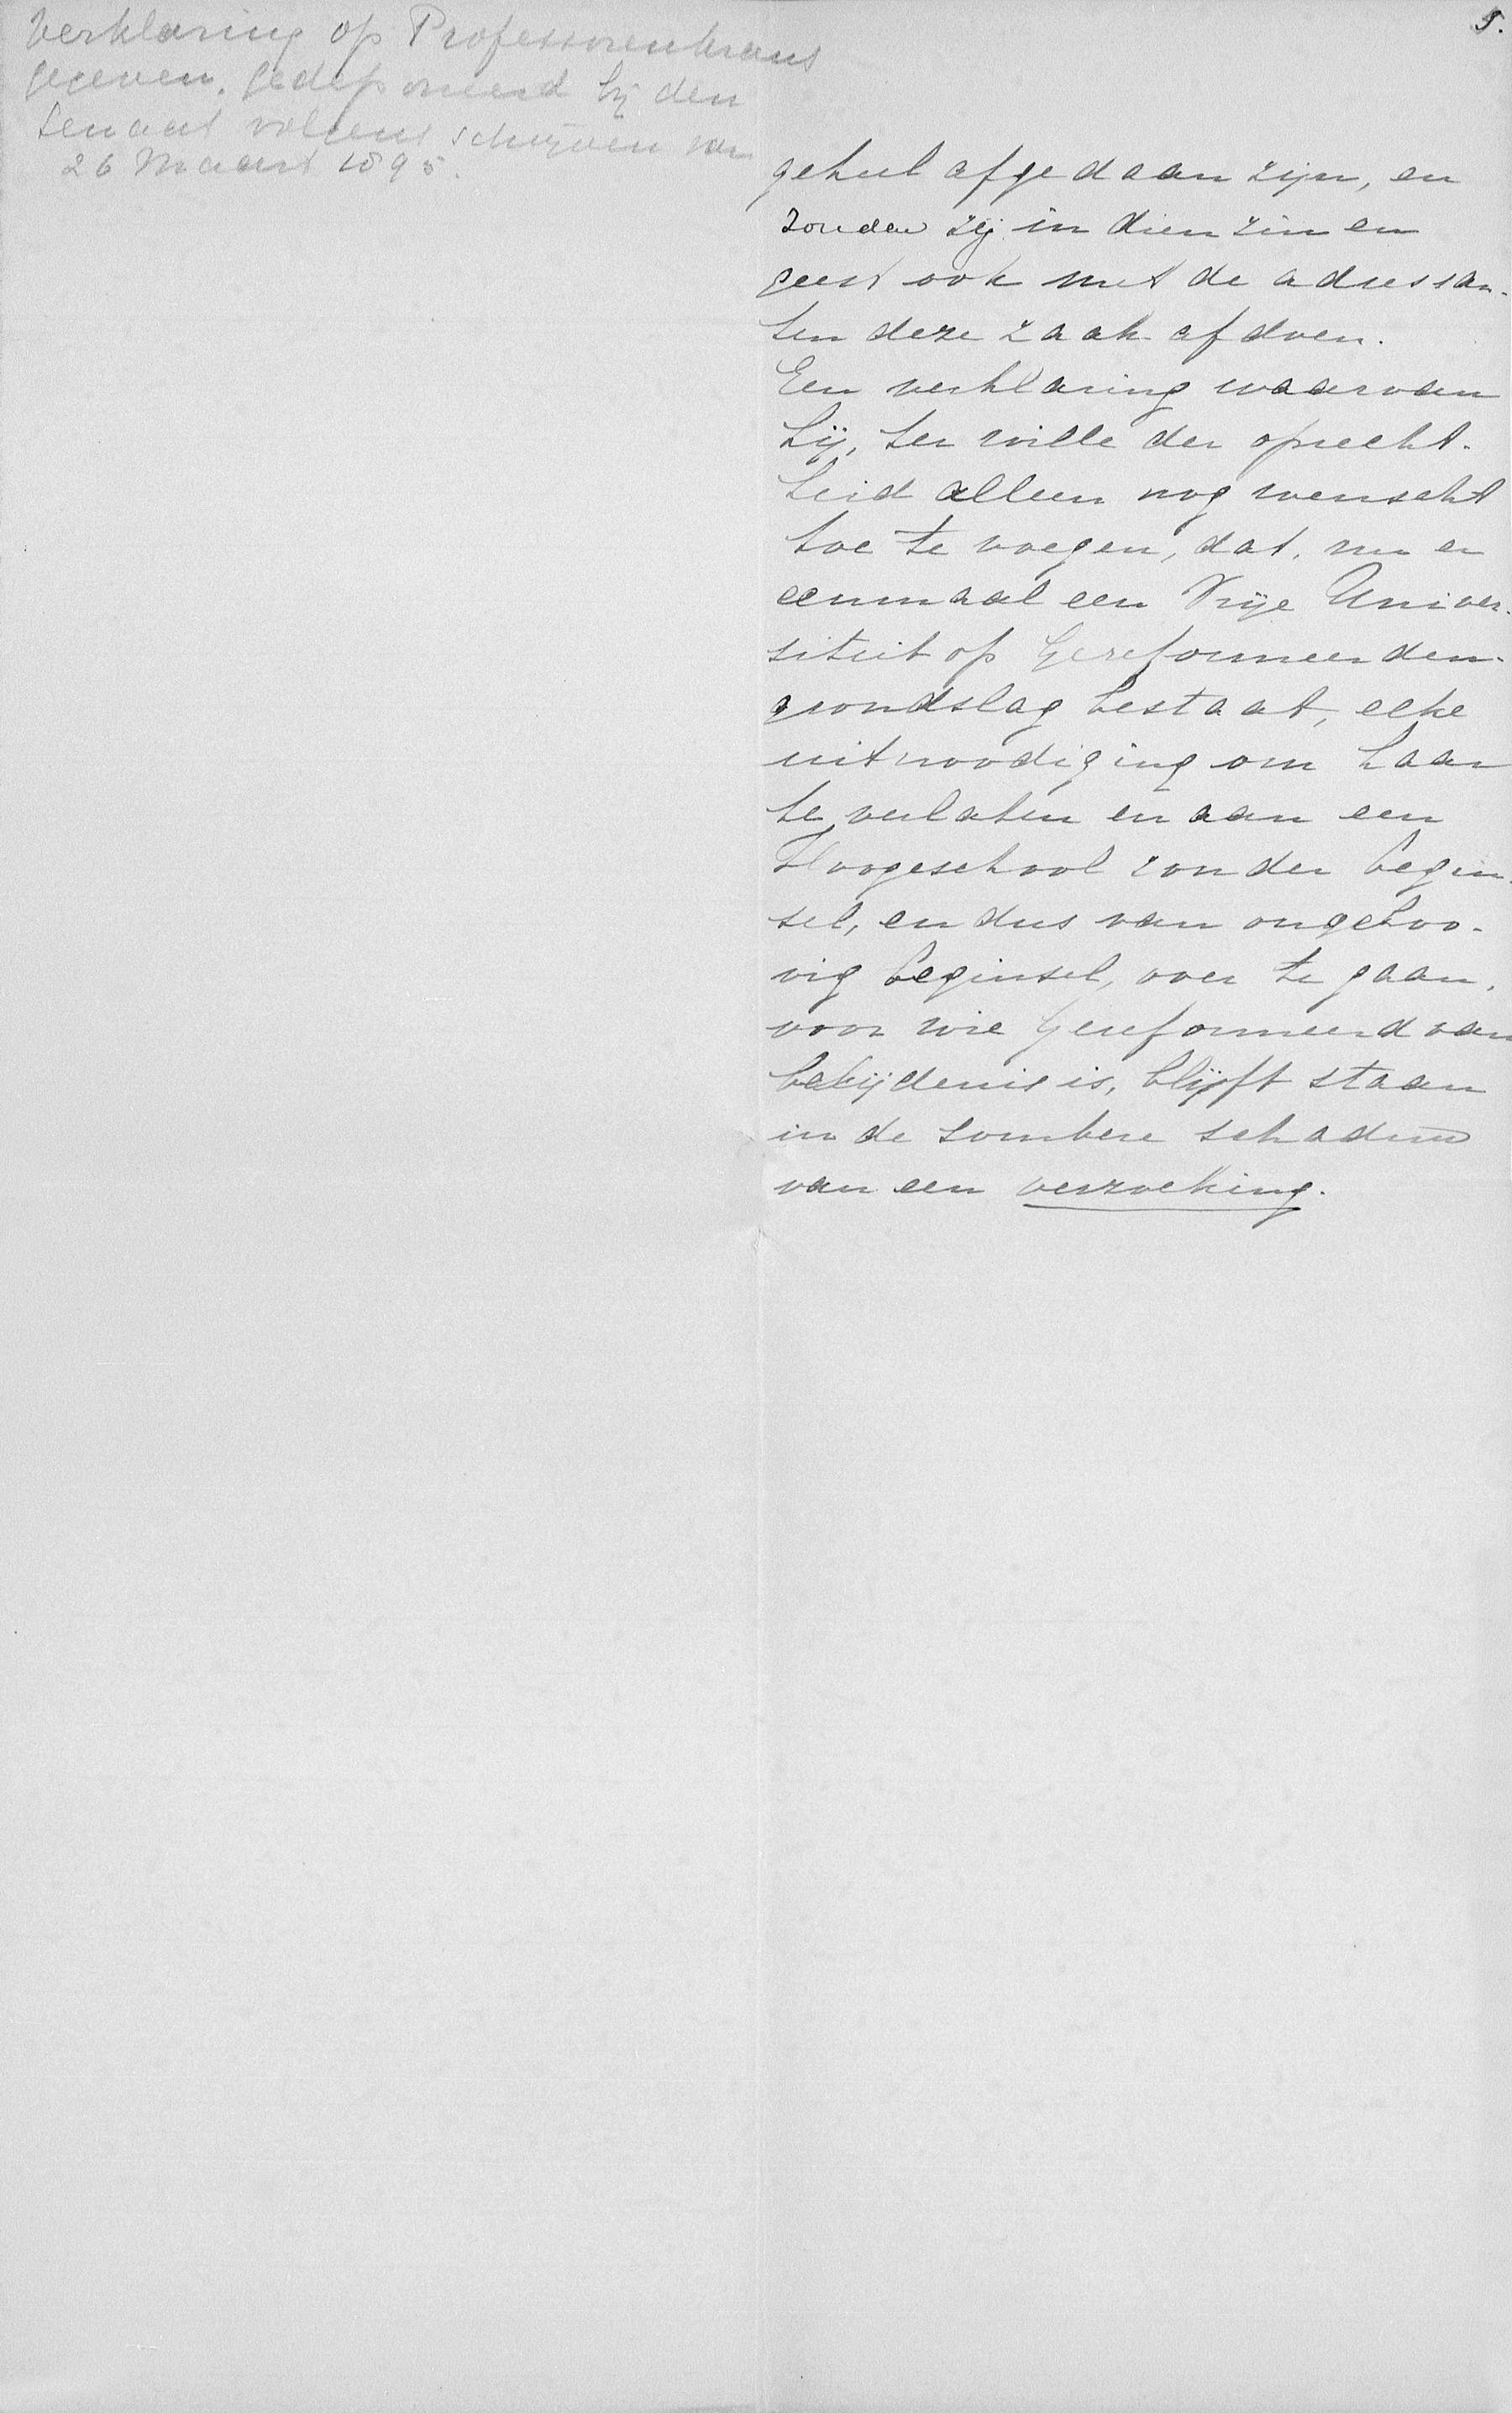 Verklaring op Professorenkrans
gegeven, gedeponeerd bij den
Senaat volgens schrijven van
26 Maart 1895.
5.
geheel afgedaan zijn, en
zouden zij in dien zin en
geest ook met de adressan-
ten deze zaak afdoen.
Een verklaring waaraan
hij, ter wille der oprecht-
heid alleen nog wenscht
toe te voegen, dat, nu er
eenmaal een Vrije Univer-
siteit op Gereformeerden
grondslag bestaat, elke
uitnoodiging om haar
te verlaten en aan een
Hoogeschool zonder begin-
sel, en dus van ongeloo-
vig beginsel, over te gaan,
voor wie Gereformeerd van
belijdenis is, blijft staan
in de sombere schaduw
van een verzoeking.